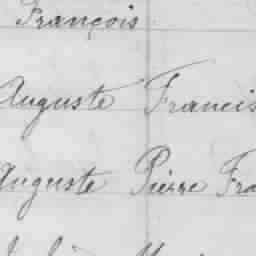 François
Auguste Francis
Auguste Pierre Fra